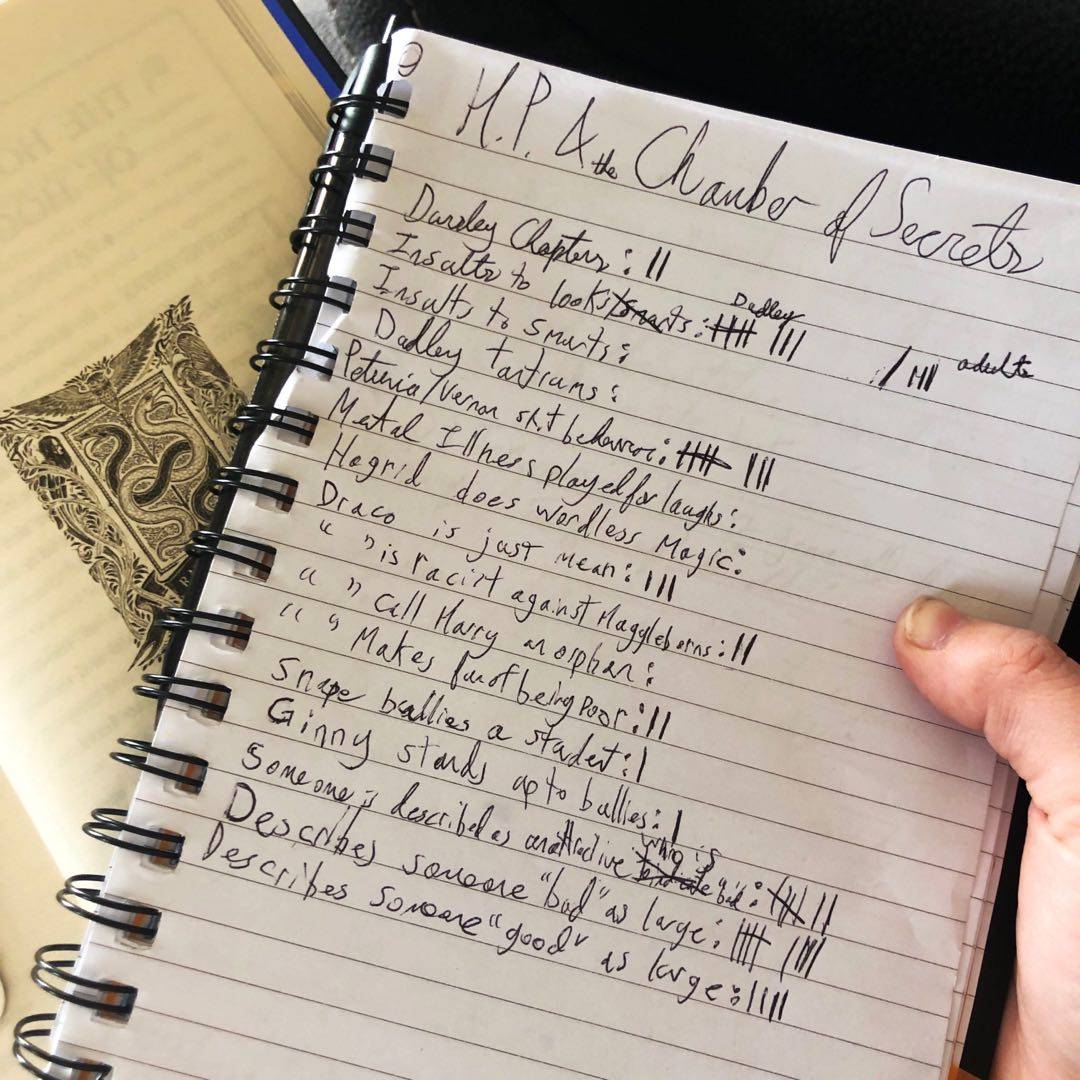 H.P. & the Chamber of Secrets
Dursley Chapters: ||
Insults to looks/smarts: Dudley |||| |||
/ |||| adults
Insults to smarts:
Dudley tantrums:
Petunia/Vernon sh.t behavior: |||| |||
Mental Illness played for laughs:
Hagrid does wordless Magic:
Draco is just mean: |||
" " is racist against Muggleborns: ||
" " Call Harry an orphan:
" " Makes fun of being poor: ||
Snape bullies a student: |
Ginny stands up to bullies: |
Someone is described as unattractive who is bad: |||| ||
Describes someone "bad" as large: |||| ||||
Describes someone "good" as large: ||||